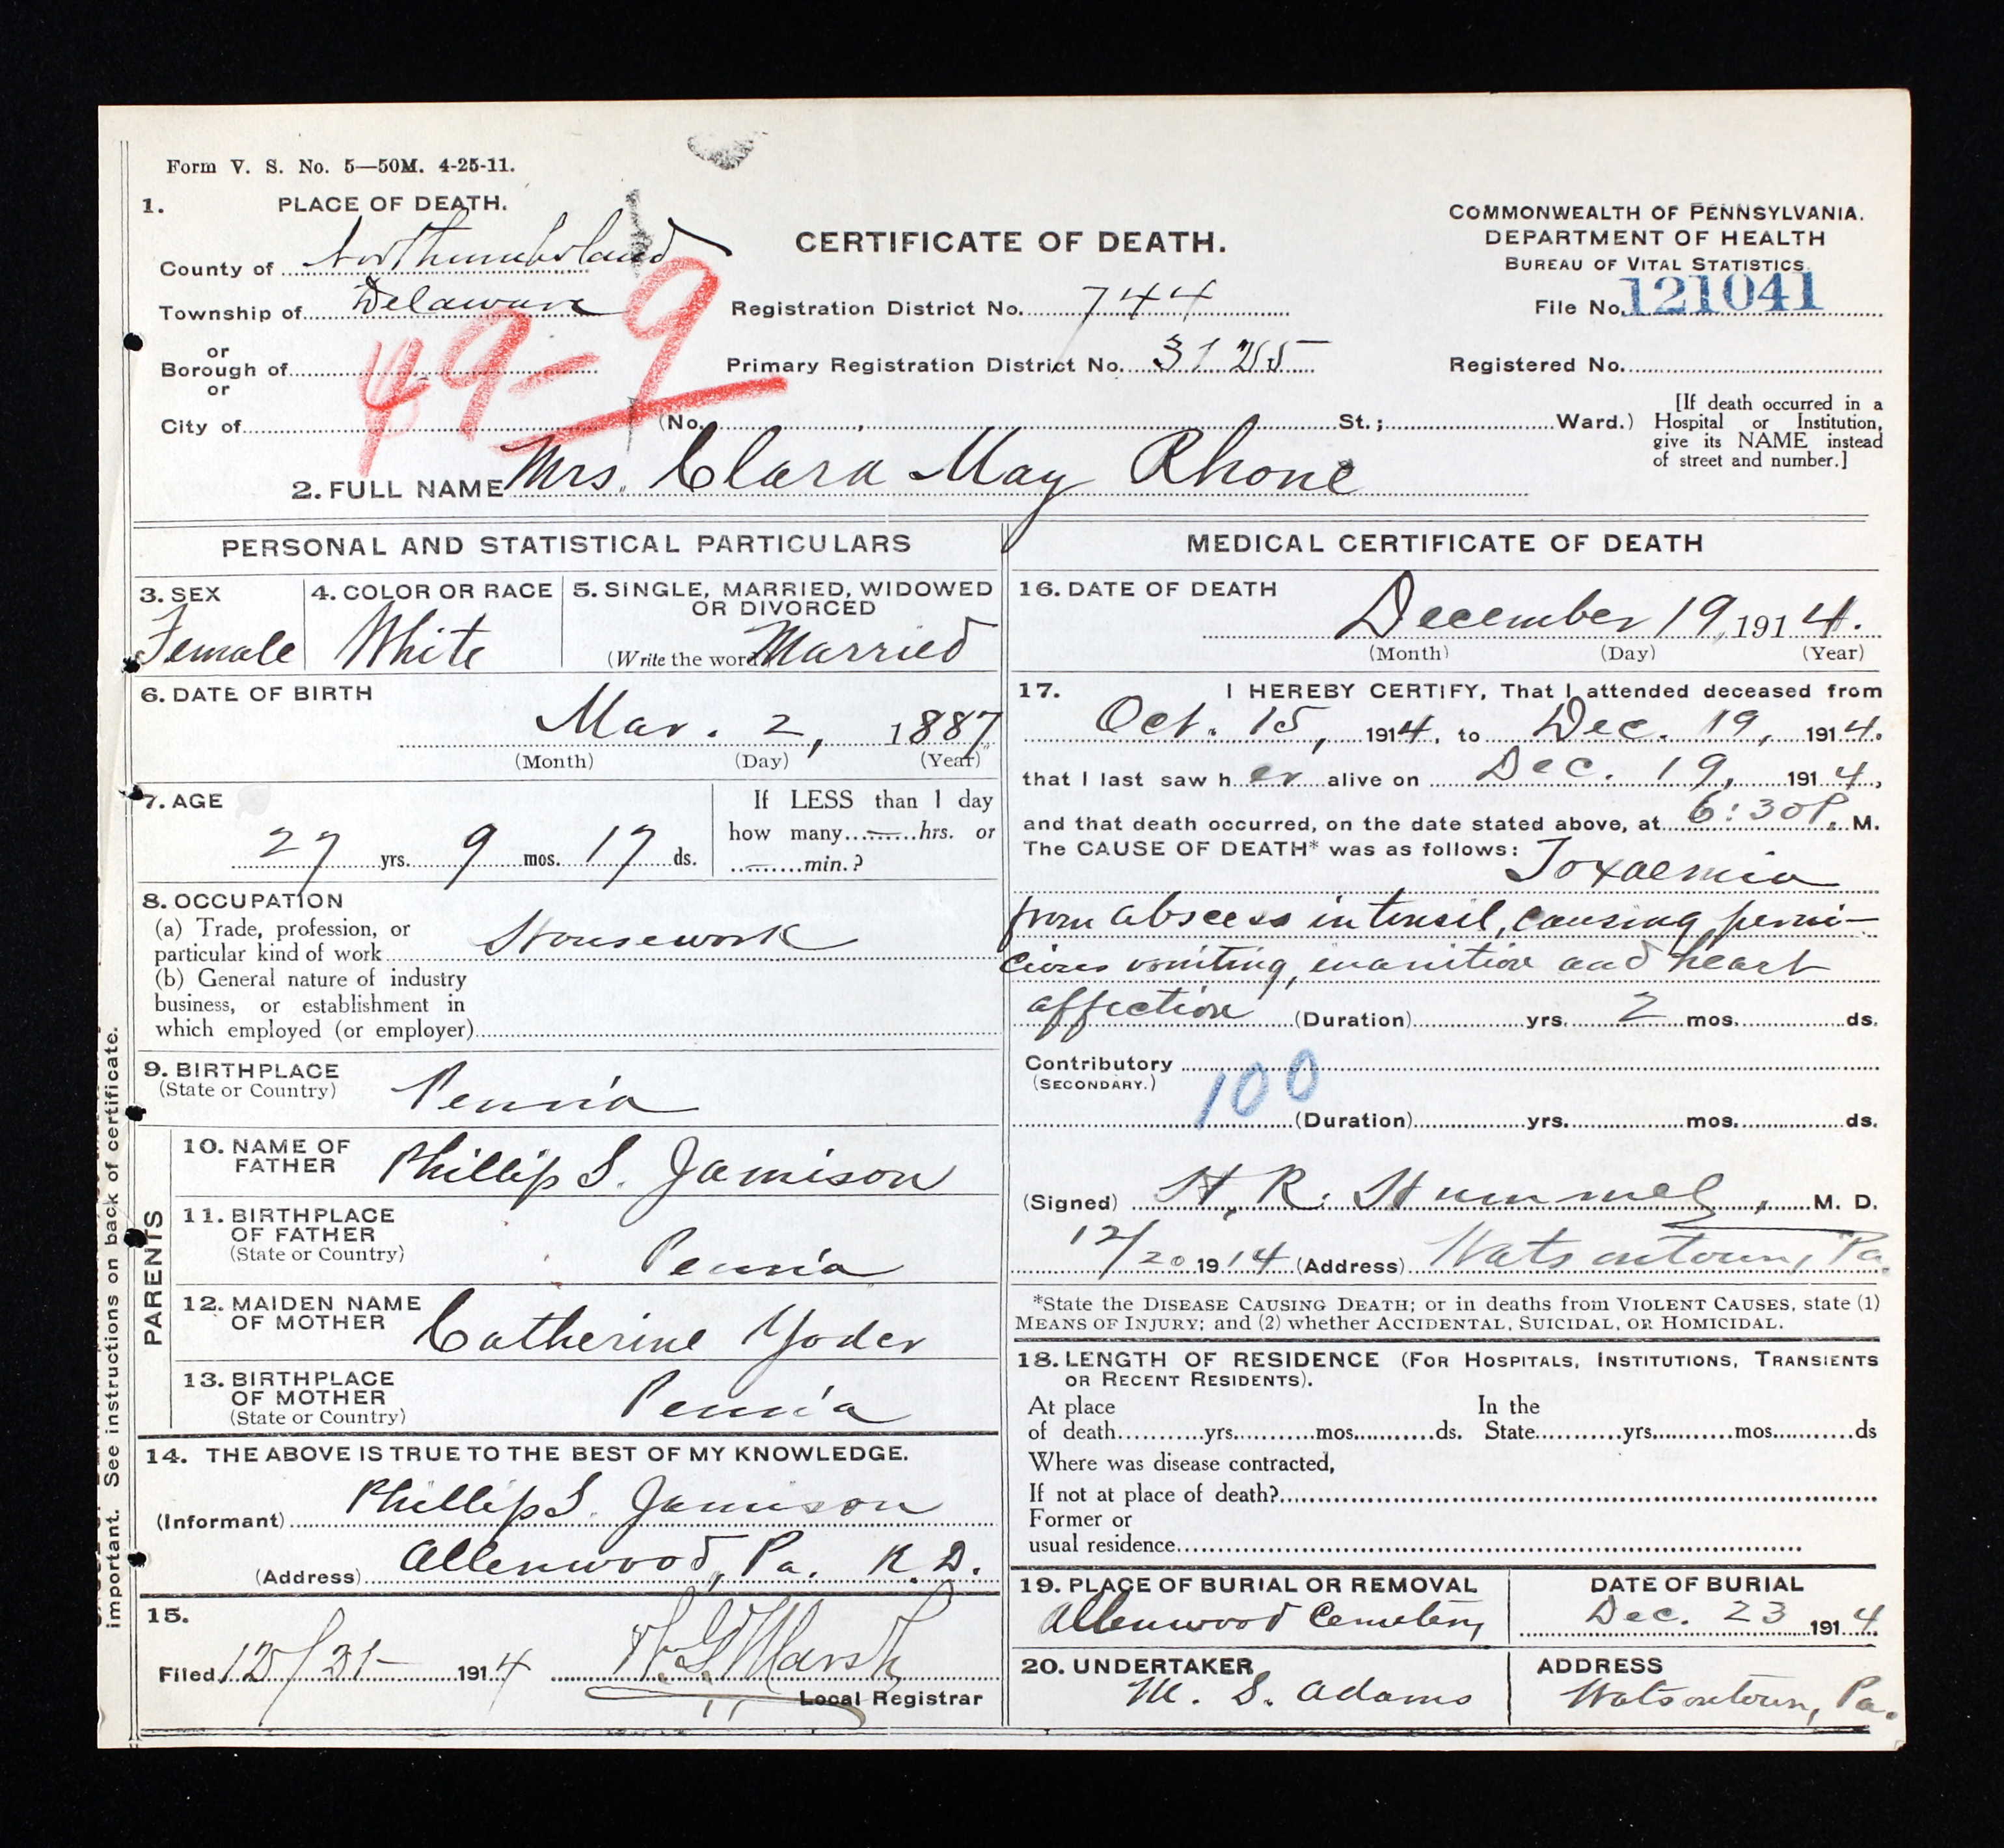 Form V. S. No. 5—50M. 4-25-11.
1. PLACE OF DEATH.
County of Northumberland
Township of Delaware
or
Borough of
or
City of
49-9
CERTIFICATE OF DEATH.
Registration District No. 744
Primary Registration District No.
(No. , St.; Ward.)
COMMONWEALTH OF PENNSYLVANIA.
DEPARTMENT OF HEALTH
BUREAU OF VITAL STATISTICS.
File No. 121041
Registered No.
[If death occurred in a
Hospital or Institution,
give its NAME instead
of street and number.]
2. FULL NAME Mrs. Clara May Rhone
PERSONAL AND STATISTICAL PARTICULARS
3. SEX
Female
4. COLOR OR RACE
White
5. SINGLE, MARRIED, WIDOWED
OR DIVORCED
(Write the word) Married
6. DATE OF BIRTH
Mar. 2, 1887
(Month) (Day) (Year)
7. AGE
27 yrs. 9 mos. 17 ds.
If LESS than 1 day
how many — hrs. or
— min.?
8. OCCUPATION
(a) Trade, profession, or
particular kind of work Housework
(b) General nature of industry
business, or establishment in
which employed (or employer)
9. BIRTHPLACE
(State or Country) Penn'a
PARENTS
10. NAME OF
FATHER Phillip S. Jamison
11. BIRTHPLACE
OF FATHER
(State or Country) Penn'a
12. MAIDEN NAME
OF MOTHER Catherine Yoder
13. BIRTHPLACE
OF MOTHER
(State or Country) Penn'a
14. THE ABOVE IS TRUE TO THE BEST OF MY KNOWLEDGE.
(Informant) Phillip S. Jamison
(Address) Allenwood, Pa. R.D.
15.
Filed 12/21 1914 Marsh
Local Registrar
important. See instructions on back of certificate.
MEDICAL CERTIFICATE OF DEATH
16. DATE OF DEATH
December 19, 1914.
(Month) (Day) (Year)
17. I HEREBY CERTIFY, That I attended deceased from
Oct. 15, 1914, to Dec. 19, 1914.
that I last saw her alive on Dec. 19, 1914,
and that death occurred, on the date stated above, at 6:30 P. M.
The CAUSE OF DEATH* was as follows:
Toxaemia
from abscess in tonsil, causing perni-
cious vomiting, inanition and heart
affection (Duration) yrs. 2 mos. ds.
Contributory
(SECONDARY.)
100
(Duration) yrs. mos. ds.
(Signed) H. R. Hummel, M. D.
12/20 1914 (Address) Watsontown, Pa.
*State the DISEASE CAUSING DEATH; or in deaths from VIOLENT CAUSES, state (1)
MEANS OF INJURY; and (2) whether ACCIDENTAL, SUICIDAL, OR HOMICIDAL.
18. LENGTH OF RESIDENCE (FOR HOSPITALS, INSTITUTIONS, TRANSIENTS
OR RECENT RESIDENTS).
At place In the
of death yrs. mos. ds. State yrs. mos. ds
Where was disease contracted,
If not at place of death?
Former or
usual residence
19. PLACE OF BURIAL OR REMOVAL
Allenwood Cemetery
DATE OF BURIAL
Dec. 23 1914
20. UNDERTAKER
M. S. Adams
ADDRESS
Watsontown, Pa.